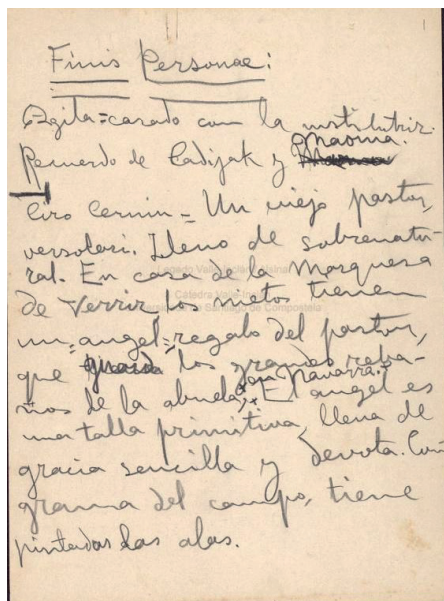 Finis Personae:
Agila = casado con la institutriz.
Recuerdo de Cadijak y Maoma.
Ciro Cernin = Un viejo pastor,
versolari. Lleno de sobrenatu-
ral. En casa de la Marquesa
de Verrir los nietos tienen
un = angel = regalo del pastor,
que guarda los grandes reba-
ños de la abuela, en Navarra. El angel es
una talla primitiva, llena de
gracia sencilla y devota. Con
grana del campo, tiene
pintadas las alas.
Legado Valle-Inclán Alsina
Cátedra Valle-Inclán
Universidade de Santiago de Compostela